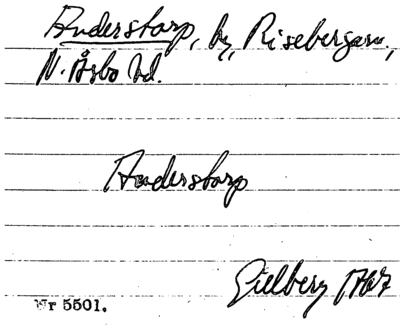 Anderstorp, by, Riseberga sn.,
N. Åsbo hd.
Anderstorp
Gillberg
Nr 5501.